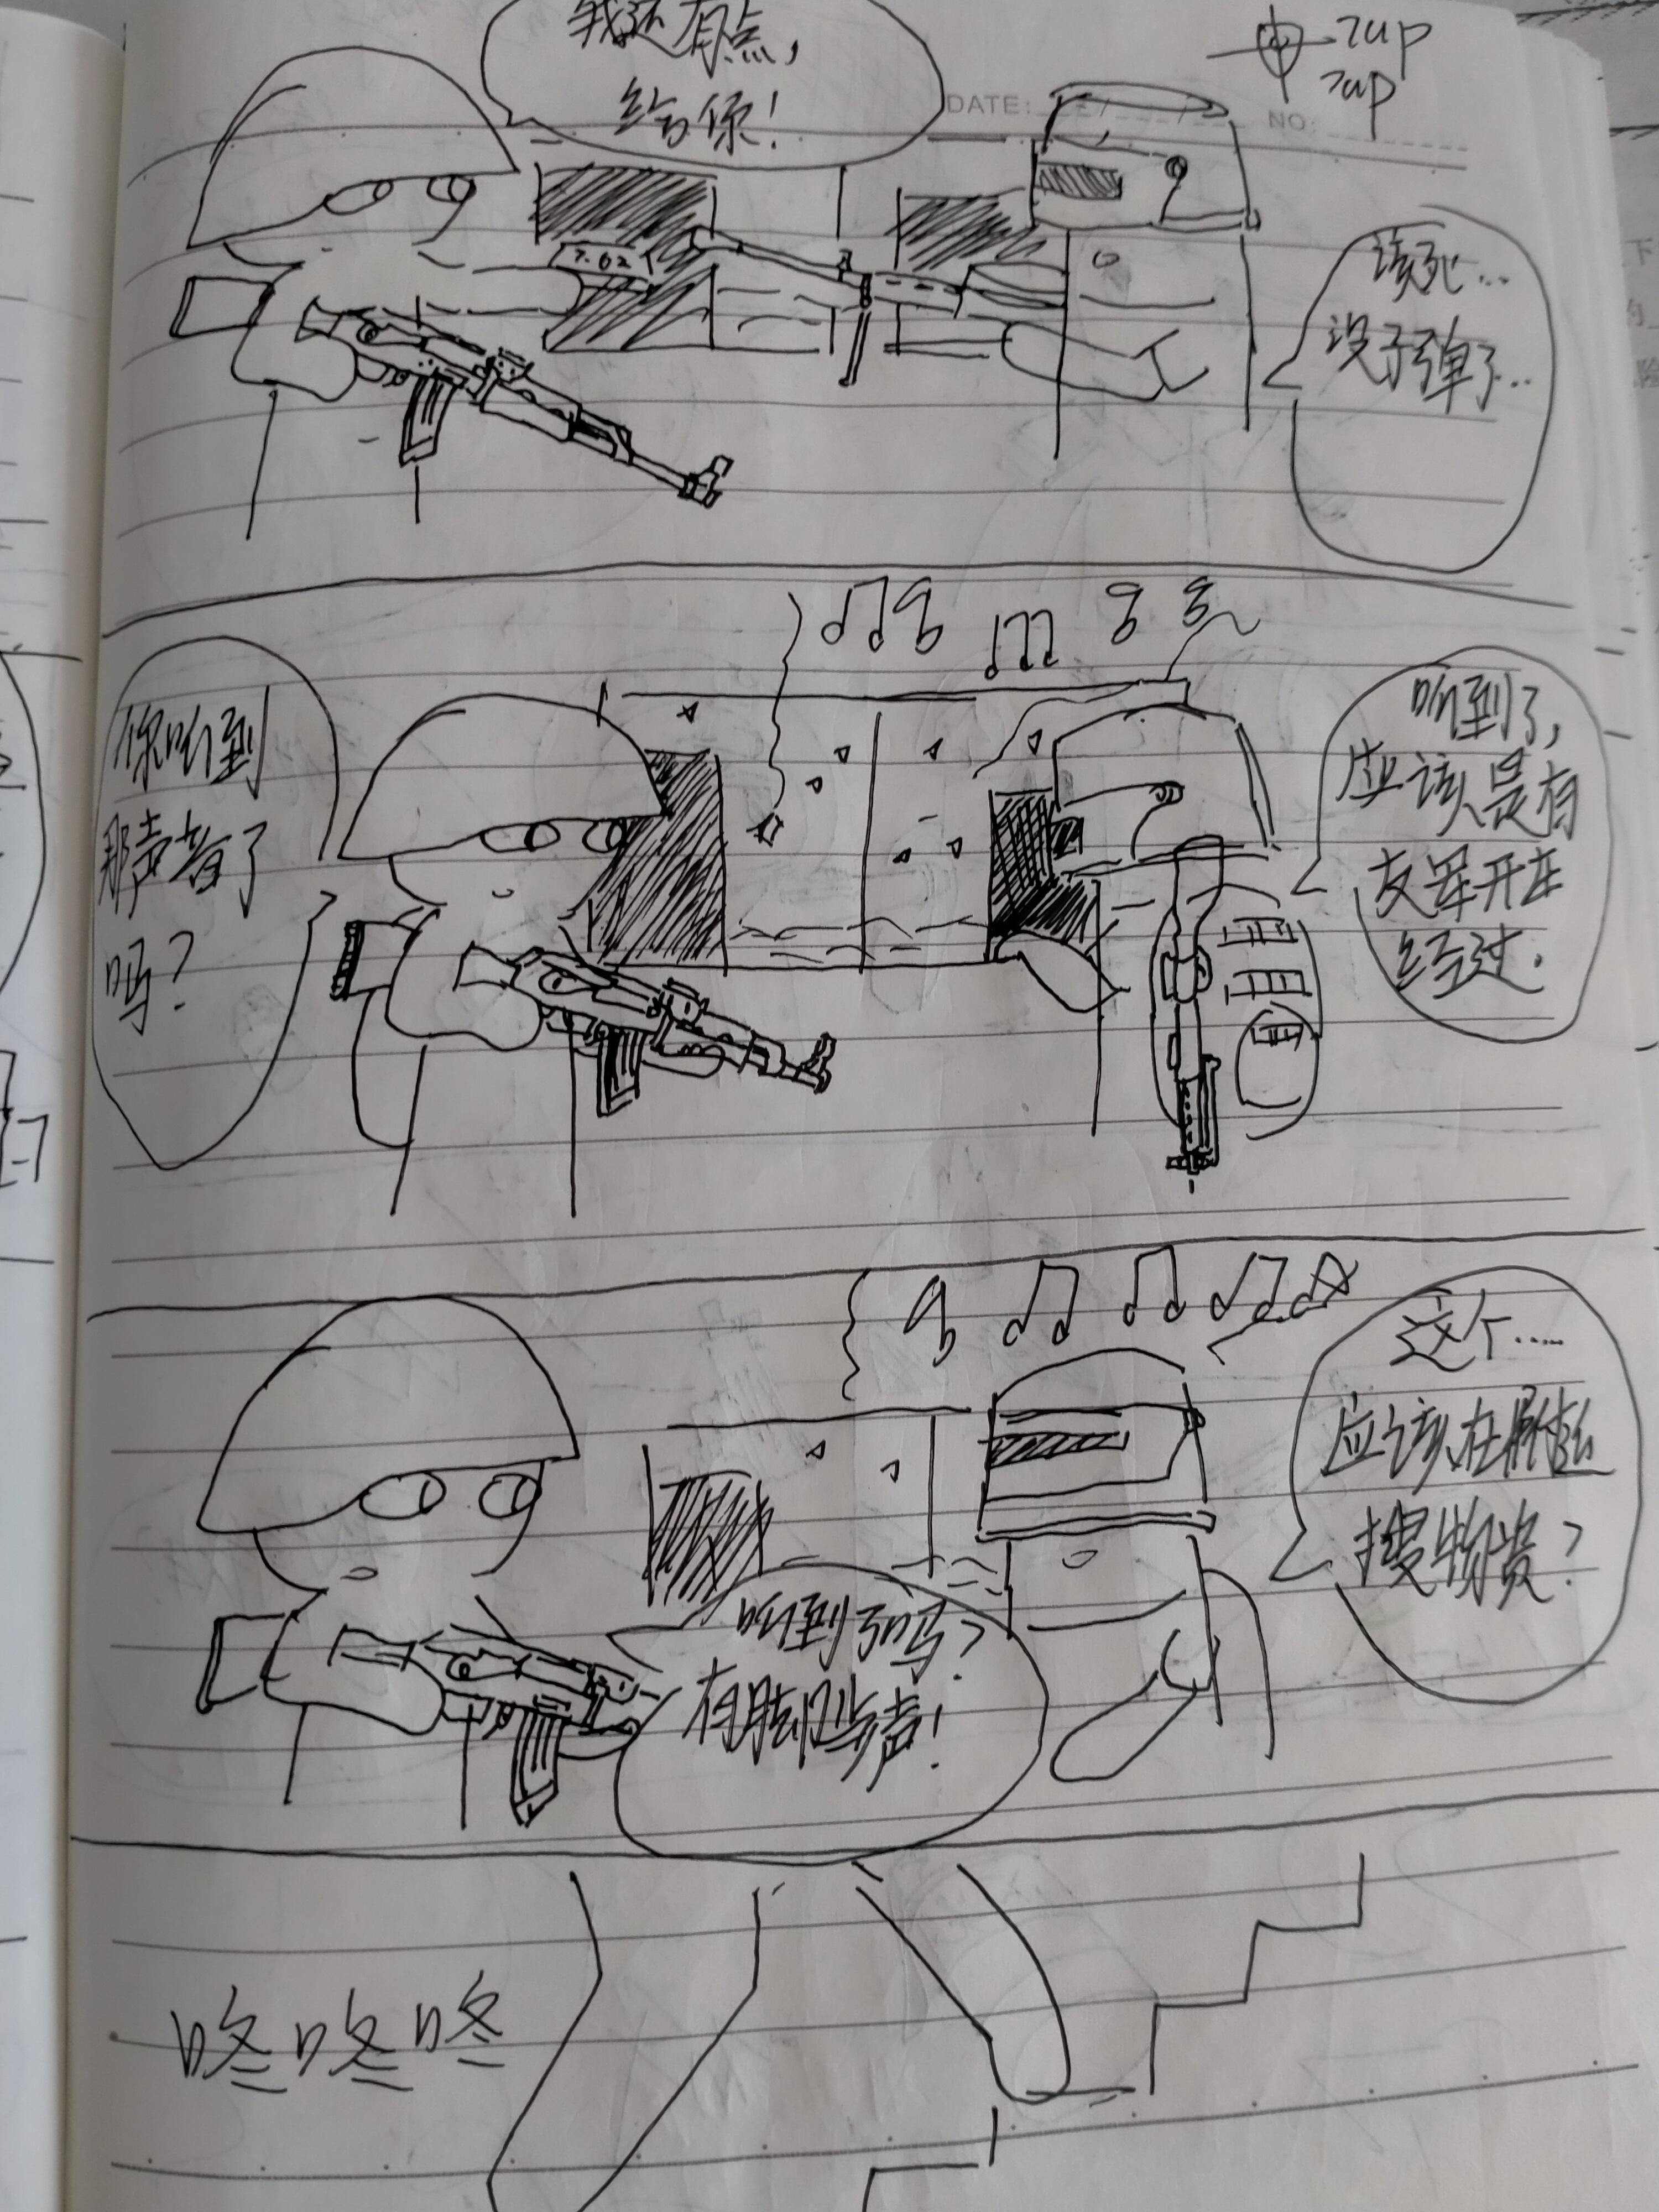 我还有点,
给你!
7up
7up
DATE:
NO:
7.62
该死...
没子弹了...
你听到
那声音了
吗?
听到了,
应该是有
友军开车
经过.
这个.....
应该在附近
搜物资?
听到了吗?
有脚步声!
咚咚咚